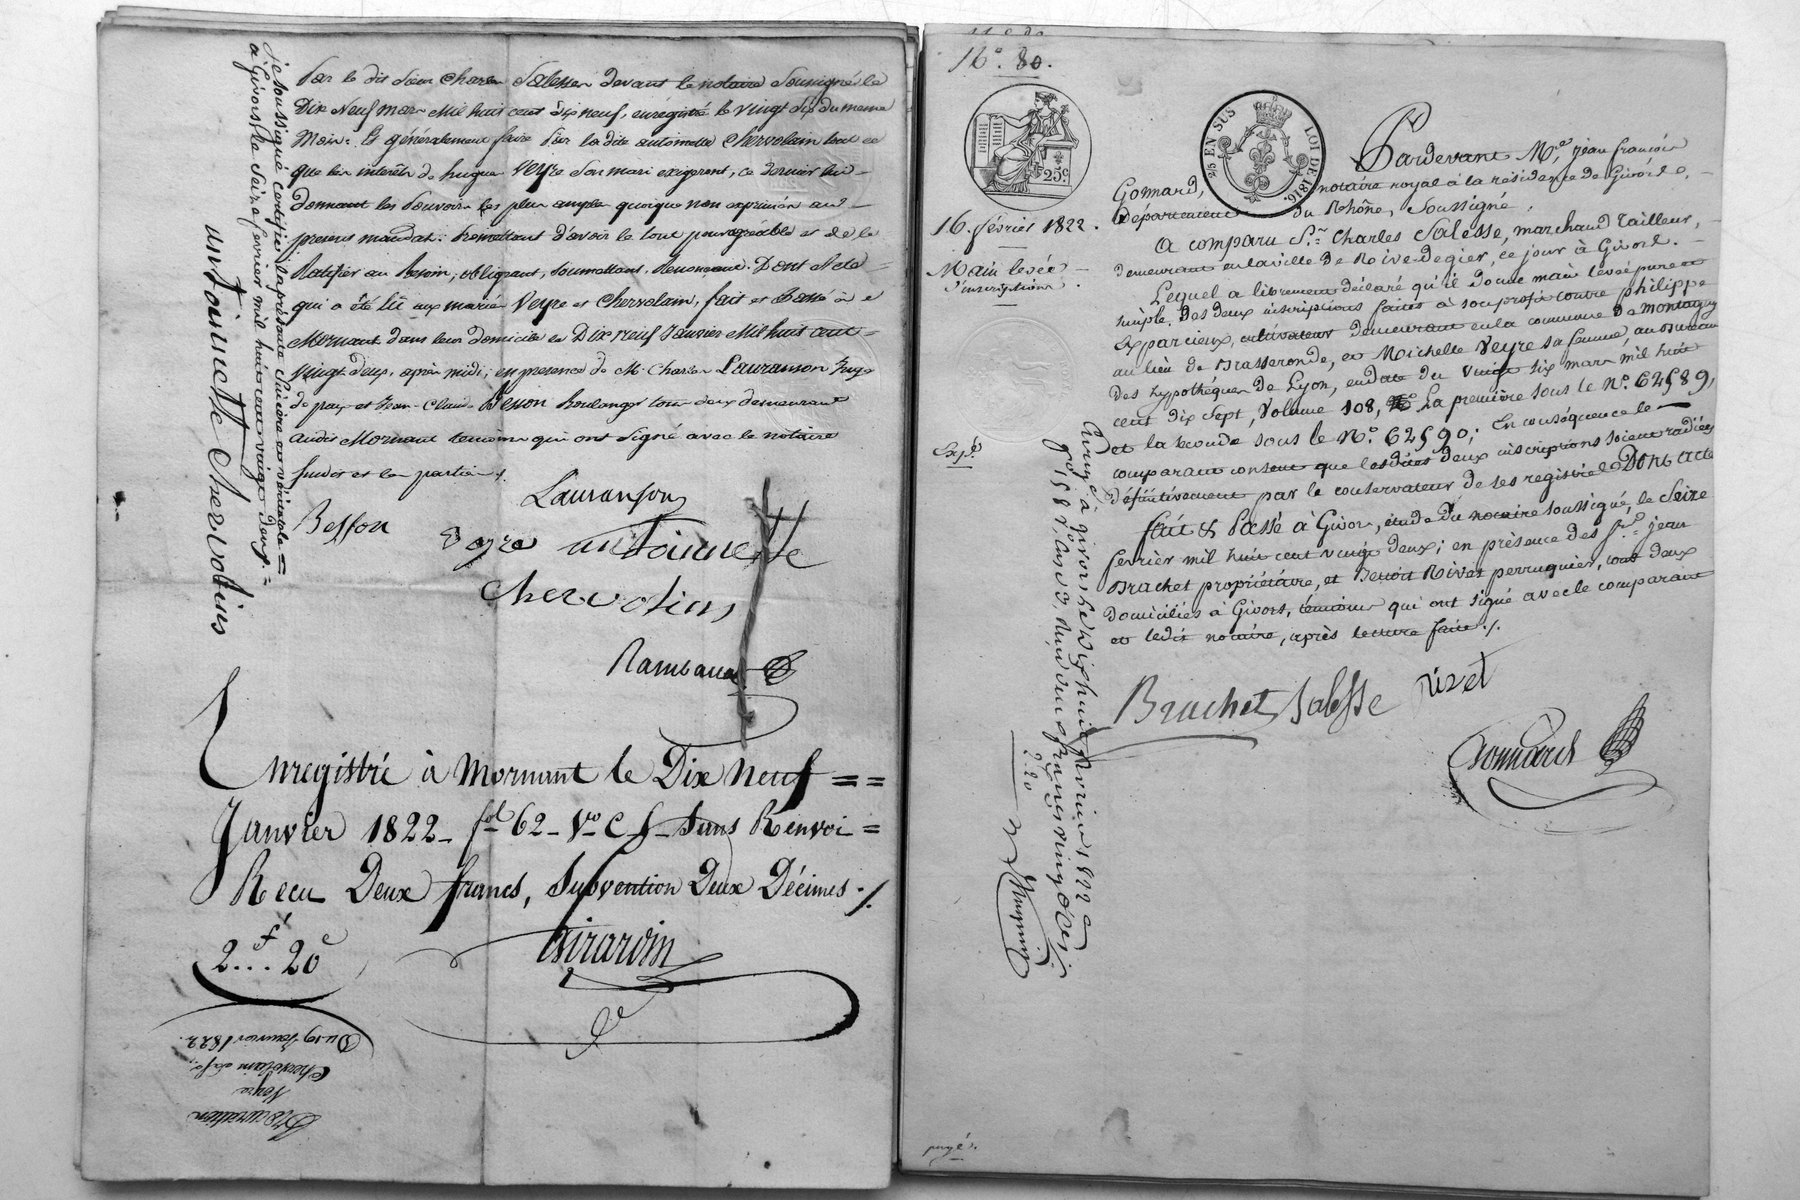 Par le dit Sieur Charles Salesse devant le notaire Soussigné le
Dix Neuf mars Mil huit cent dix neuf, enrégistré le vingt du meme
Mois. Et généralement faire Par la dite antoinette Chervolain tout ce
que les intérêts de hugues Veyre Son mari exigeront, ce dernier lui
donnant les Pouvoirs les plus amples quoique non exprimés au
present mandat. Promettant d'avoir le tout pour agréable et de le
Ratifier au Besoin, obligeant, Soumettant, Renonceant. Dont Acte
qui a été lû aux mariés Veyre et Chervolain, fait et Passé à
Mornant dans leur domicile le Dix neuf Janvier Mil huit cent
vingt deux, après midi; en presence de M. Charles Lauranson Juge
de paix et Jean-Claude Besson Boulanger tous deux demeurant
audit Mornant temoins qui ont Signé avec le notaire
Susdit et les parties ./.
Lauranson
Besson Veyre antoinette
Chervolins
Rambaud
Enregistré à Mornant le Dix Neuf ==
Janvier 1822 - fol 62 - Vo C Sans Renvoi =
Recu Deux francs, Subvention Deux Décimes ./.
2f..20c
Girardin
Je Soussigné certifie la présente Sincère et véritable =
à Givors le Seize fevrier mil huit cent vingt deux =
antoinette Chervolins
Procuration
Veyre
Chervolain
Du 19 Janvier 1822.
No. 80.
25c
2/5 EN SUS
LOI DE 1816.
16. février 1822.
Main levée
d'inscriptions.
Expé.
Pardevant Me. jean françois
Gomard, notaire royal à la résidence de Givors,
Département du Rhône, Soussigné.
A comparu Sr. Charles Salesse, marchand Tailleur,
demeurant en la ville de Rive-de-gier, ce jour à Givors.
Lequel a librement déclaré qu'il donne main levée pure et
simple, Des deux inscriptions faites à son profit contre philippe
Exparcieux, cultivateur demeurant en la commune de Montagny
au lieu de Brasseronde, et Michelle Veyre sa femme, au Bureau
des hypothéques de Lyon, en date du vingt six mars mil huit
cent dix sept, Volume 108, La première sous le No. 62589,
et la seconde sous le No. 62590; En conséquence le
comparant consent que lesdites deux inscriptions soient radiées
définitivement par le conservateur de ses registres Dont acte
fait & Passé à Givors, étude du notaire soussigné, le Seize
fevrier mil huit cent vingt deux; en présence des Srs. jean
Brachet propriétaire, et Benoit Rivet perruquier, tous deux
domiciliés à Givors, témoins qui ont signé avec le comparant
et ledit notaire, après lecture faite ./.
Brachet Salesse rivet
Gomard
à Givors le dix huit fevrier 1822
2.20
payé.